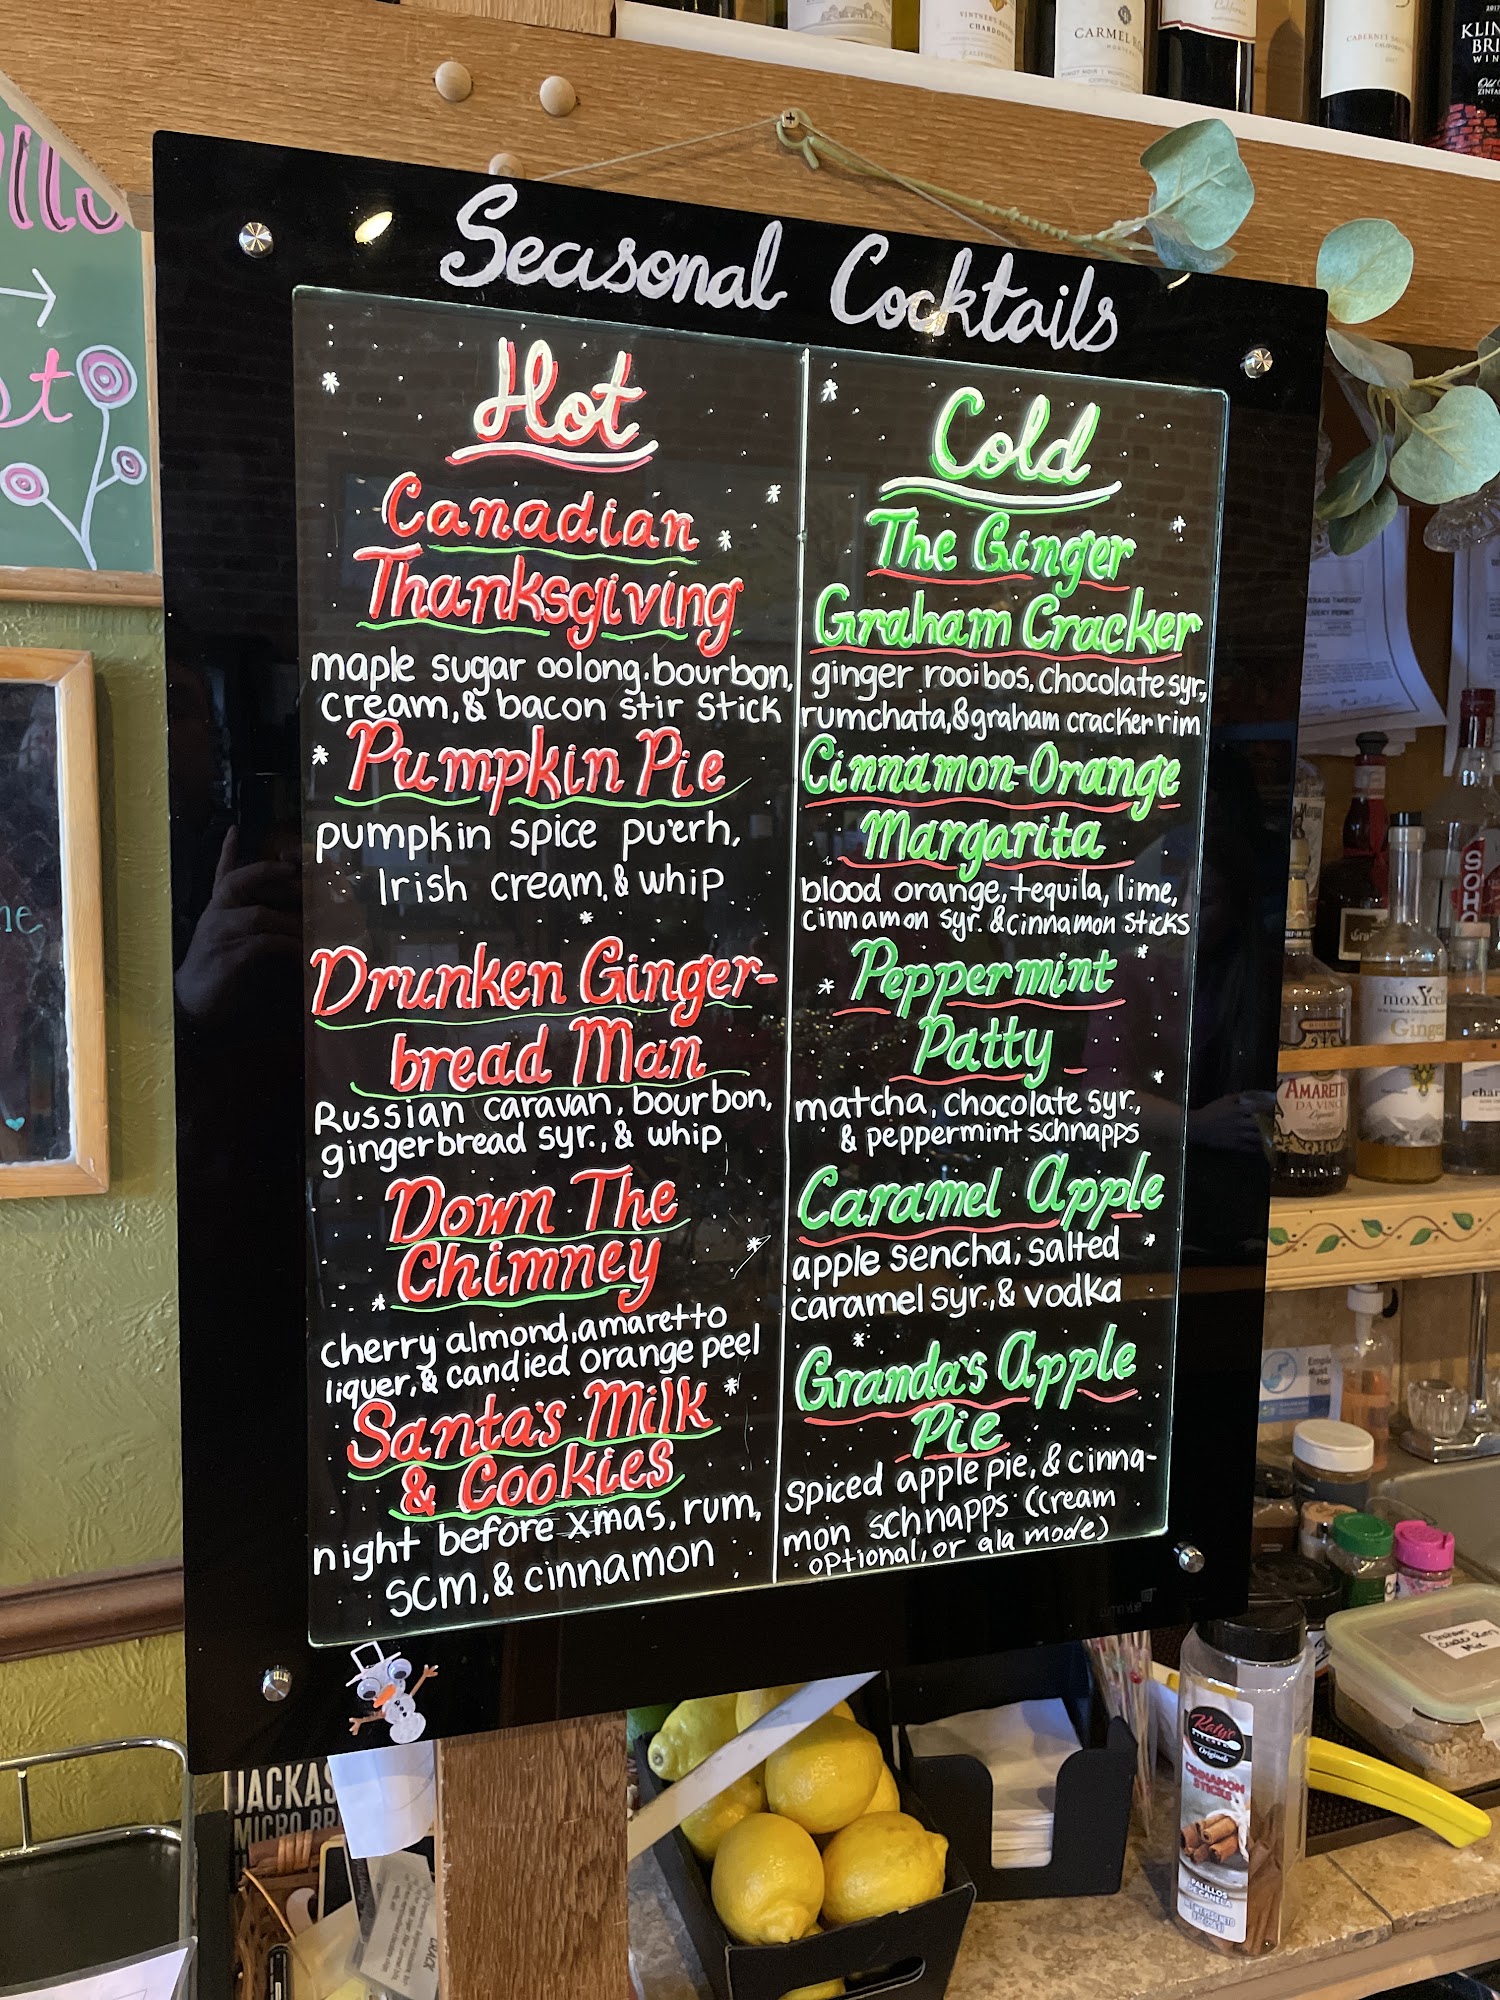 Seasonal Cocktails
Hot
Canadian
Thanksgiving
maple sugar oolong, bourbon,
cream, & bacon stir stick
Pumpkin Pie
pumpkin spice pu'erh,
Irish cream, & whip
Drunken Ginger-
bread Man
Russian caravan, bourbon,
gingerbread syr., & whip
Down The
Chimney
cherry almond, amaretto
liquer, & candied orange peel
Santa's Milk
& Cookies
night before xmas, rum,
SCM, & cinnamon
Cold
The Ginger
Graham Cracker
ginger rooibos, chocolate syr,
rumchata, & graham cracker rim
Cinnamon-Orange
Margarita
blood orange, tequila, lime,
cinnamon syr. & cinnamon sticks
Peppermint
Patty
matcha, chocolate syr.,
& peppermint schnapps
Caramel Apple
apple sencha, salted
caramel syr., & vodka
Granda's Apple
Pie
Spiced apple pie, & cinna-
mon schnapps (cream
optional, or ala mode)
CHARDONNAY
CARMEL
PINOT NOIR
CABERNET
CALIFORNIA
AMARETT
DA VINC
Ginger
SOHO
JACKAS
MICRO BR
CRACK
Katy's
Originals
CINNAMON
STICKS
PALILLOS
DE CANELA